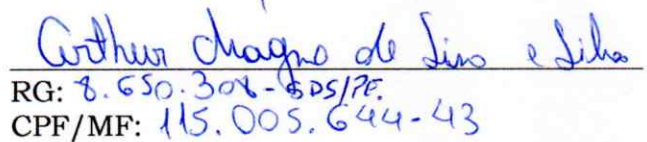 Arthur Magno de Lira e Silva
RG: 8.650.308-SDS/PE.
CPF/MF: 115.005.644-43